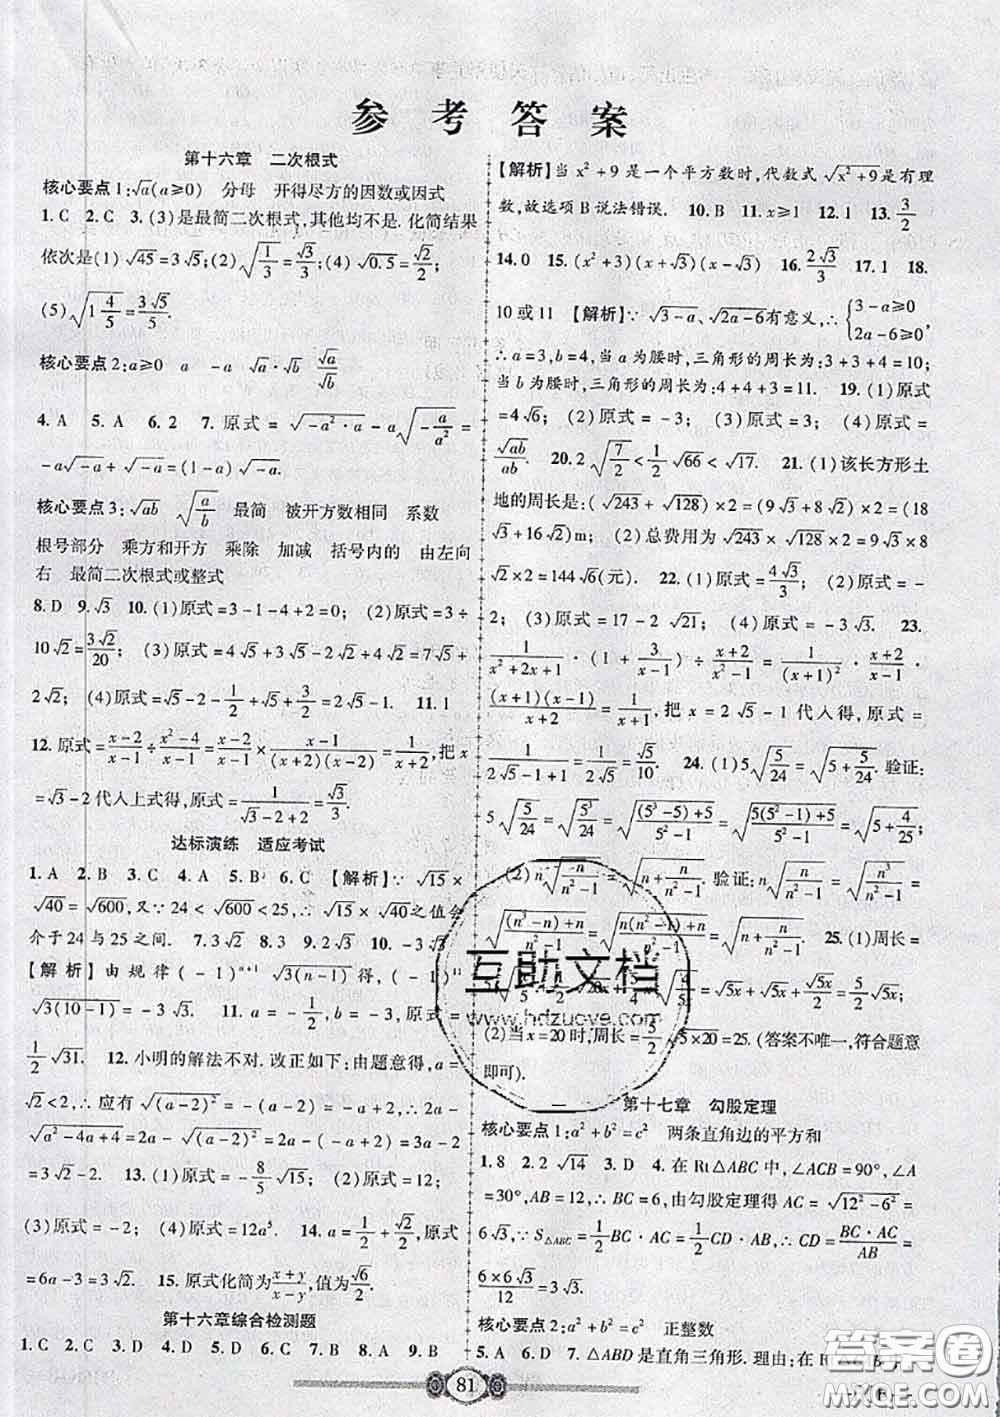 参考答案
第十六章 二次根式
核心要点1:√a(a≥0) 分母 开得尽方的因数或因式
1.C 2.C 3.(3)是最简二次根式,其他均不是.化简结果
依次是(1)√45=3√5;(2)√(1/3)=√3/3;(4)√0.5=√2/2;
(5)√(1 4/5)=3√5/5.
核心要点2:a≥0 a -a √a·√b √a/√b
4.A 5.A 6.2 7.原式=√(-a²·a)-a√(-a/a²)=
-a√-a+√-a=(1-a)√-a.
核心要点3:√ab √(a/b) 最简 被开方数相同 系数
根号部分 乘方和开方 乘除 加减 括号内的 由左向
右 最简二次根式或整式
8.D 9.√3 10.(1)原式=3-1-4+2=0; (2)原式=3÷
10√2=3√2/20; (3)原式=4√5+3√5-2√2+4√2=7√5+
2√2; (4)原式=√5-2-1/2+√5+1/2=2√5-1. 11.1
12.原式=(x-2)/(x-1)÷(x²-4)/(x-1)=(x-2)/(x-1)×(x-1)/((x+2)(x-2))=1/(x+2),把x
=√3-2代入上式得,原式=1/(√3-2+2)=√3/3.
达标演练 适应考试
1.A 2.B 3.C 4.A 5.B 6.C 【解析】∵√15×
√40=√600,又∵24<√600<25,∴√15×√40之值会
介于24与25之间. 7.3√2 8.3 9.2√2 10.-3√3
【解析】由规律(-1)ⁿ⁺¹√3(n-1)得,(-1)¹¹
√3(10-1)=-3√3. 11.∵a=1,b=-3,∴原式=
1/2√31. 12.小明的解法不对.改正如下:由题意得,a=
√2,∴应有√(a-2)²=-(a-2)=-a+2.∴
√(a²-4a+4)=√(a-2)²=-(a-2)=-a+2=-√2
+2=2-√2. 13.(1)原式=-8/5√15;(2)原式=12√2;
(3)原式=-2;(4)原式=12a⁵. 14.a=1/2+√2/2,原式
=6a-3=3√2. 15.原式化简为(x+y)/(x-y),值为√6/2.
第十六章综合检测题
1.C 2.C 3.D 4.D 5.D 6.B 7.A 8.A 9.B
【解析】当x²+9是一个平方数时,代数式√(x²+9)是有理
数,故选项B说法错误. 10.B 11.x≥1 12.1 13.3/2
14.0 15.(x²+3)(x+√3)(x-√3) 16.2√3/3 17.1 18.
10或11 【解析】∵√(3-a)、√(2a-6)有意义,∴{3-a≥0 2a-6≥0,
∴a=3,b=4,当a为腰时,三角形的周长为:3+3+4=10;
当b为腰时,三角形的周长为:4+4+3=11. 19.(1)原式
=4√6; (2)原式=-3; (3)原式=2; (4)原式=
√ab/ab. 20.2√(7/2)<1/2√66<√17. 21.(1)该长方形土
地的周长是:(√243+√128)×2=(9√3+8√2)×2=(18
√3+16√2)m; (2)总费用为√243×√128×2=9√3×8
√2×2=144√6(元). 22.(1)原式=4√3/3; (2)原式=-
2; (3)原式=17-2√21; (4)原式=-3√3. 23.
1/(x²+2x+1)·(1+3/(x-1))÷(x+2)/(x²-1)=1/(x+1)²·(x+2)/(x-1)·
(x+1)(x-1)/(x+2)=1/(x+1),把x=2√5-1代入得,原式=
1/(2√5-1+1)=1/(2√5)=√5/10. 24.(1)5√(5/24)=√(5+5/24).验证:
5√(5/24)=√(5³/24)=√(((5³-5)+5)/(5²-1))=√((5(5²-1)+5)/(5²-1))=√(5+5/24);
(2)n√(n/(n²-1))=√(n+n/(n²-1)).验证:n√(n/(n²-1))=√(n³/(n²-1))=
√(((n³-n)+n)/(n²-1))=√((n(n²-1)+n)/(n²-1))=√(n+n/(n²-1)). 25.(1)周长=
=√5x+1/2√5x+√5x=5/2√5x;
(2)当x=20时,周长=5/2√(5×20)=25.(答案不唯一,符合题意
即可).
第十七章 勾股定理
核心要点1:a²+b²=c² 两条直角边的平方和
1.8 2.2√14 3.D 4.在Rt△ABC中,∠ACB=90°,∠A
=30°,AB=12,∴BC=6,由勾股定理得AC=√(12²-6²)=
6√3,∵S△ABC=1/2BC·AC=1/2CD·AB,∴CD=BC·AC/AB=
6×6√3/12=3√3.
核心要点2:a²+b²=c² 正整数
5.A 6.D 7.△ABD是直角三角形.理由:在
互助文档
www.hdzuowe.com
答案圈
81